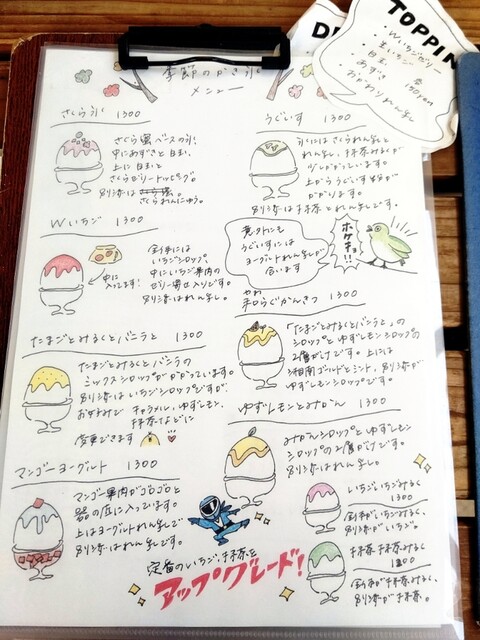 季節のかき氷
メニュー
TOPPIN
・Wいちごゼリー
・生いちご
・白玉
・あずき 各
150yen
・おかわりれん乳
さくら氷 1300
さくら蜜ベースの氷!
中にあずきと白玉、
上に白玉と
さくらゼリートッピング。
別添は
さくられんにゅう。
Wいちご 1300
全体には
いちごシロップ
中にいちご果肉の
ゼリー寄せ入りです。
別添はれん乳。
中に
入ってます!
たまごとみるくとバニラと 1300
たまごとみるくとバニラの
ミックスシロップがかかっています。
別添はいちごシロップですが、
お好みで キャラメル、ゆずレモン、
抹茶などに
変更できます
マンゴーヨーグルト 1300
マンゴー果肉がゴロゴロと
器の底に入っています。
上はヨーグルトれん乳で
別添はれん乳です。
うぐいす 1300
氷にはさくられん乳と
れん乳、抹茶みるくが
かかっています。
上からうぐいす
かかります。
別添は抹茶とれん乳です。
意外にも
うぐいすには
ヨーグルトれん乳が
合います
ホケキョ!!
やわ
和らぐかんきつ 1300
「たまごとみるくとバニラと」の
シロップとゆずレモンシロップの
2層がけです。上には
湘南ゴールドとミント、別添が
ゆずレモンシロップです。
ゆずレモンとみかん 1300
みかんシロップとゆずレモン
シロップの2層がけです。
別添はれん乳。
いちごいちごみるく
1300
全体がいちごみるく、
別添がいちご。
抹茶抹茶みるく
1300
全体が抹茶みるく、
別添が抹茶。
定番のいちご、抹茶を
アップグレード!